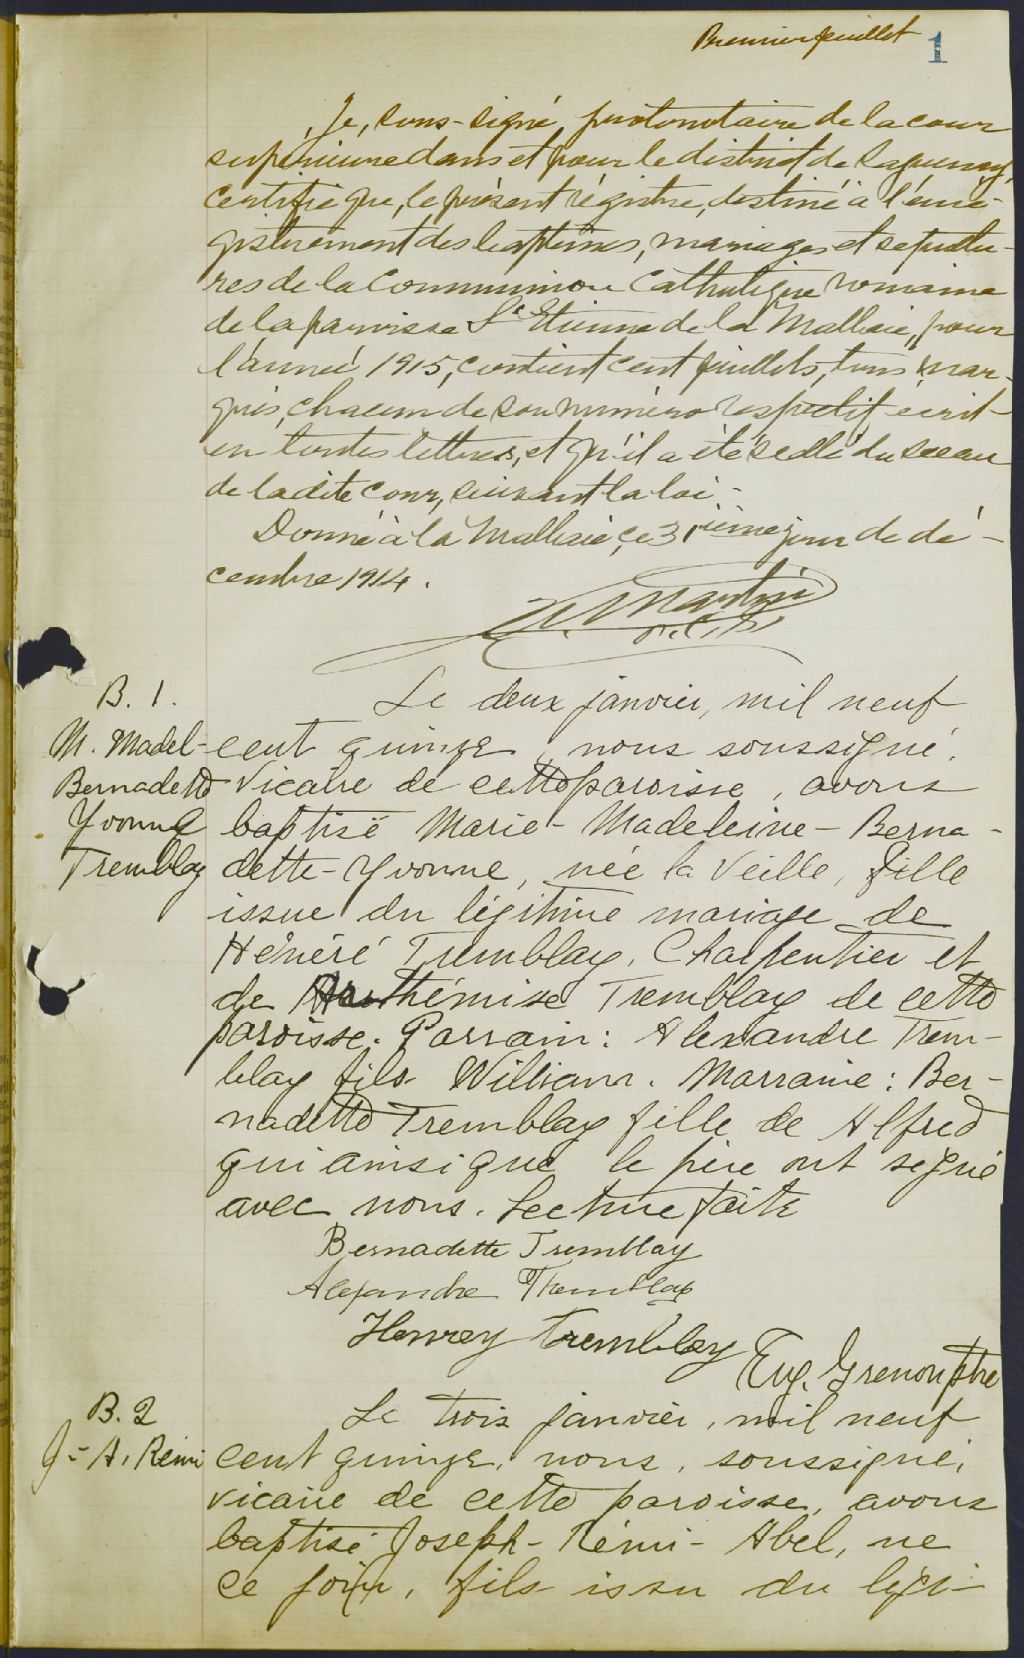 Premier feuillet 1
Je, sous-signé, protonotaire de la cour
supérieure dans et pour le district de Saguenay,
certifie que, le présent régistre, destiné à l'enre-
gistrement des baptêmes, mariages et sépultu-
res de la Communion Catholique romaine
de la paroisse St Etienne de la Malbaie, pour
l'année 1915, contient cent feuillets, tous mar-
qués, chacun de son numéro respectif écrit
en toutes lettres, et qu'il a été scellé du sceau
de la dite cour, suivant la loi.-
Donné à la Malbaie, ce 31ième jour de dé-
cembre 1914.
Martin
B. 1.
M. Madel-
Bernadette
Yvonne
Tremblay
Le deux janvier, mil neuf
cent quinze, nous soussigné,
Vicaire de cette paroisse, avons
baptisé Marie-Madeleine-Berna-
dette-Yvonne, née la veille, fille
issue du légitime mariage de
Héneré Tremblay, Charpentier et
de Arthémise Tremblay de cette
paroisse. Parrain: Alexandre Trem-
blay fils William. Marraine: Ber-
nadette Tremblay fille de Alfred
qui ainsi que le père ont signé
avec nous. Lecture faite
Bernadette Tremblay
Alexandre Tremblay
Henrey Tremblay
Eug. Grenon ptre
B. 2
J-A. Rémi
Le trois janvier, mil neuf
cent quinze, nous, soussigné,
vicaire de cette paroisse, avons
baptisé Joseph-Rémi-Abel, né
ce jour, fils issu du légi-